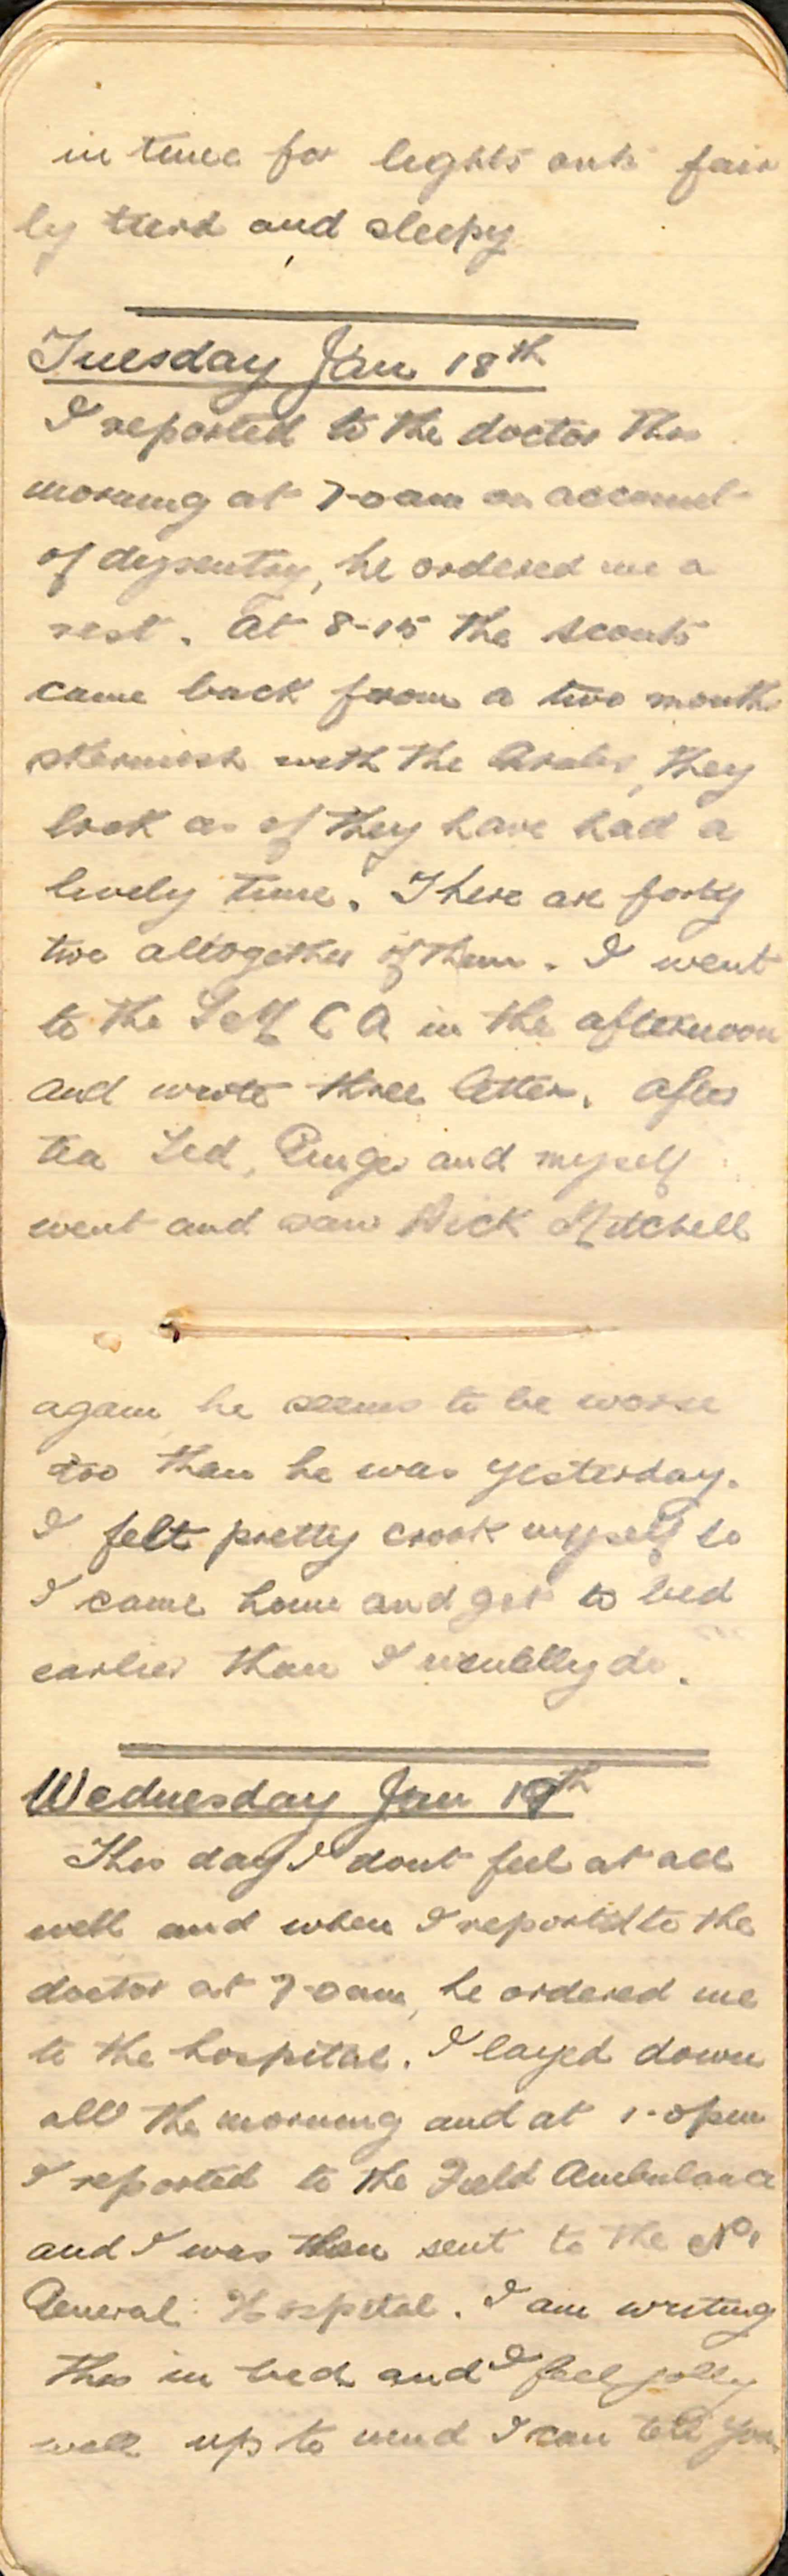 in time for lights out fair
ly tierd and sleepy
Tuesday Jan 18th
I reported to the doctor this
morning at 7-0am on account
of dysentry, he ordered me a
rest. At 8-15 the scouts
came back from a two months
skermish with the Arabs, they
look as if they have had a
lively time. There are forty
two altogether of them. I went
to the Y M C A in the afternoon
and wrote three letters. After
tea Ted, Ginger and myself
went and saw Dick Mitchell
again he seems to be worse
too than he was yesterday.
I felt pretty crook myself so
I came home and got to bed
earlier than I usually do.
Wednesday Jan 19th
This day I dont feel at all
well and when I reported to the
doctor at 7-0am, he ordered me
to the hospital. I layed down
all the morning and at 1-0pm
I reported to the Field Ambulance
and I was then sent to the No 1
General Hospital. I am writing
this in bed and I feel jolly
well up to mud I can tell you